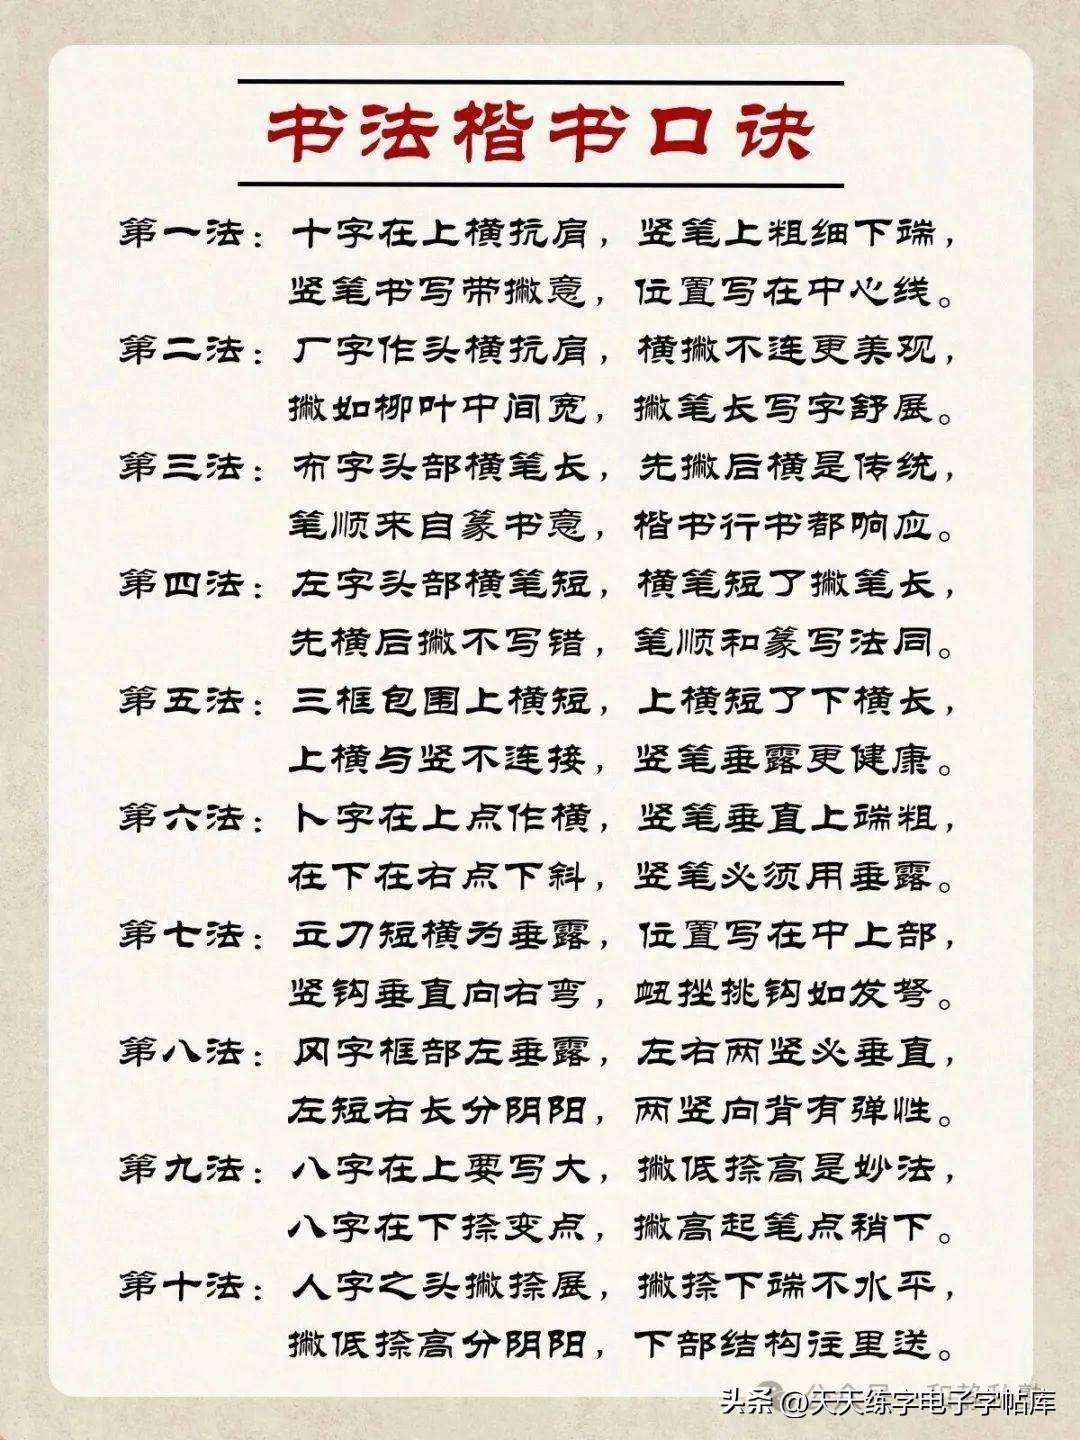 书法楷书口诀
第一法：十字在上横抗肩，竖笔上粗细下端，
竖笔书写带撇意，位置写在中心线。
第二法：厂字作头横抗肩，横撇不连更美观，
撇如柳叶中间宽，撇笔长写字舒展。
第三法：布字头部横笔长，先撇后横是传统，
笔顺来自篆书意，楷书行书都响应。
第四法：左字头部横笔短，横笔短了撇笔长，
先横后撇不写错，笔顺和篆写法同。
第五法：三框包围上横短，上横短了下横长，
上横与竖不连接，竖笔垂露更健康。
第六法：卜字在上点作横，竖笔垂直上端粗，
在下在右点下斜，竖笔必须用垂露。
第七法：立刀短横为垂露，位置写在中上部，
竖钩垂直向右弯，衄挫挑钩如发弩。
第八法：冈字框部左垂露，左右两竖必垂直，
左短右长分阴阳，两竖向背有弹性。
第九法：八字在上要写大，撇低捺高是妙法，
八字在下捺变点，撇高起笔点稍下。
第十法：人字之头撇捺展，撇捺下端不水平，
撇低捺高分阴阳，下部结构往里送。
头条@天天练字电子字帖库